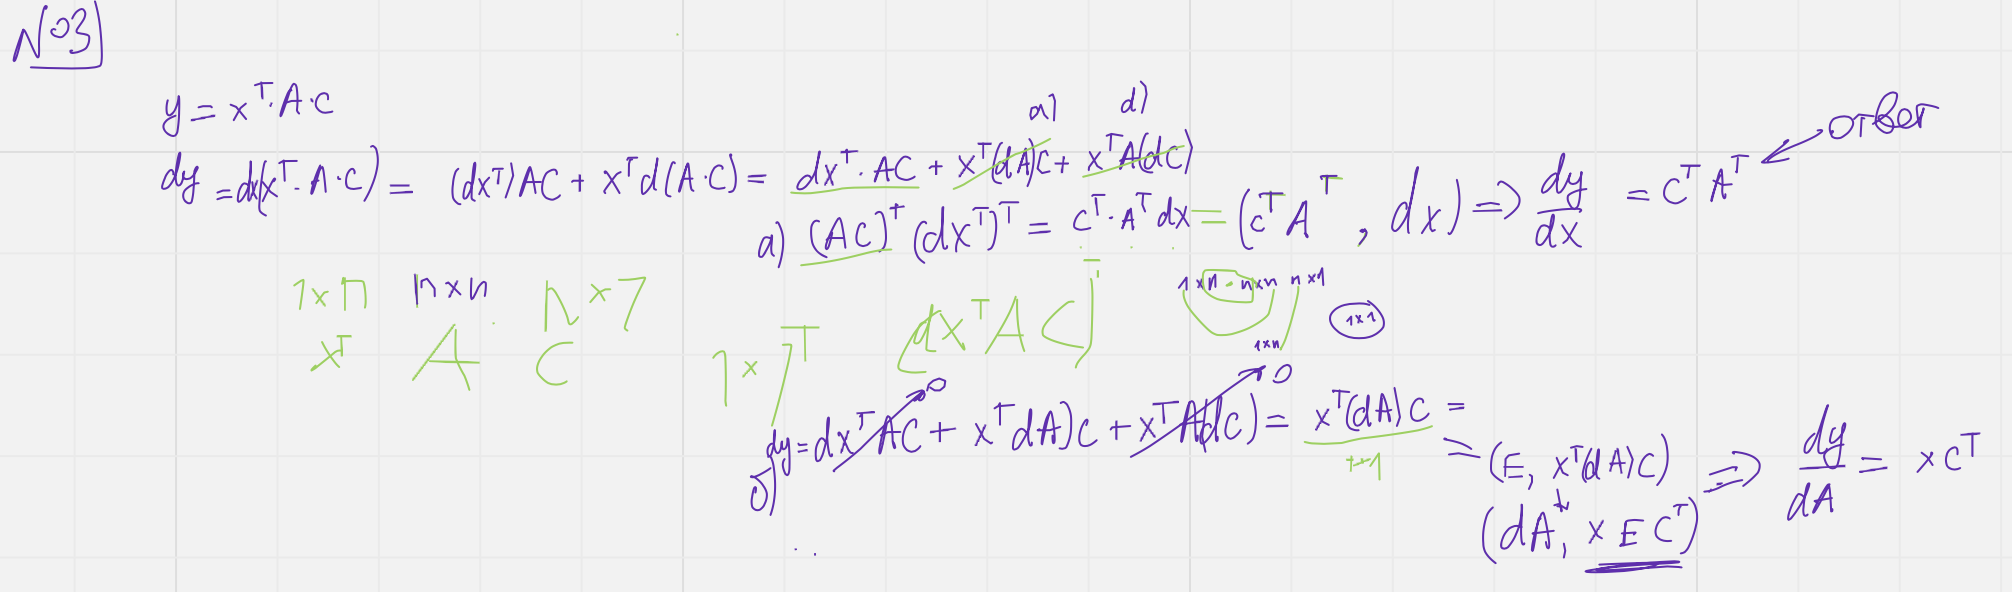 №3
y = x^T · A · C
a) d)
dy = d(x^T · A · C) = (dx^T)AC + x^T d(A · C) = dx^T · AC + x^T(dA)C + x^T A(dC)
ответ
a) (AC)^T (dx^T)^T = C^T · A^T dx = (C^T A^T, dx) => dy/dx = C^T A^T
1×n n×n n×1
x^T A C
1×1^T (dx^T AC)^T
1×n · n×n n×1
1×1
1×n
б) dy = dx^T AC → 0 + x^T dA)C + x^T A(dC) → 0 = x^T(dA)C =
1×1
= (E, x^T(dA)C) => dy/dA = xC^T
(dA, x E C^T)